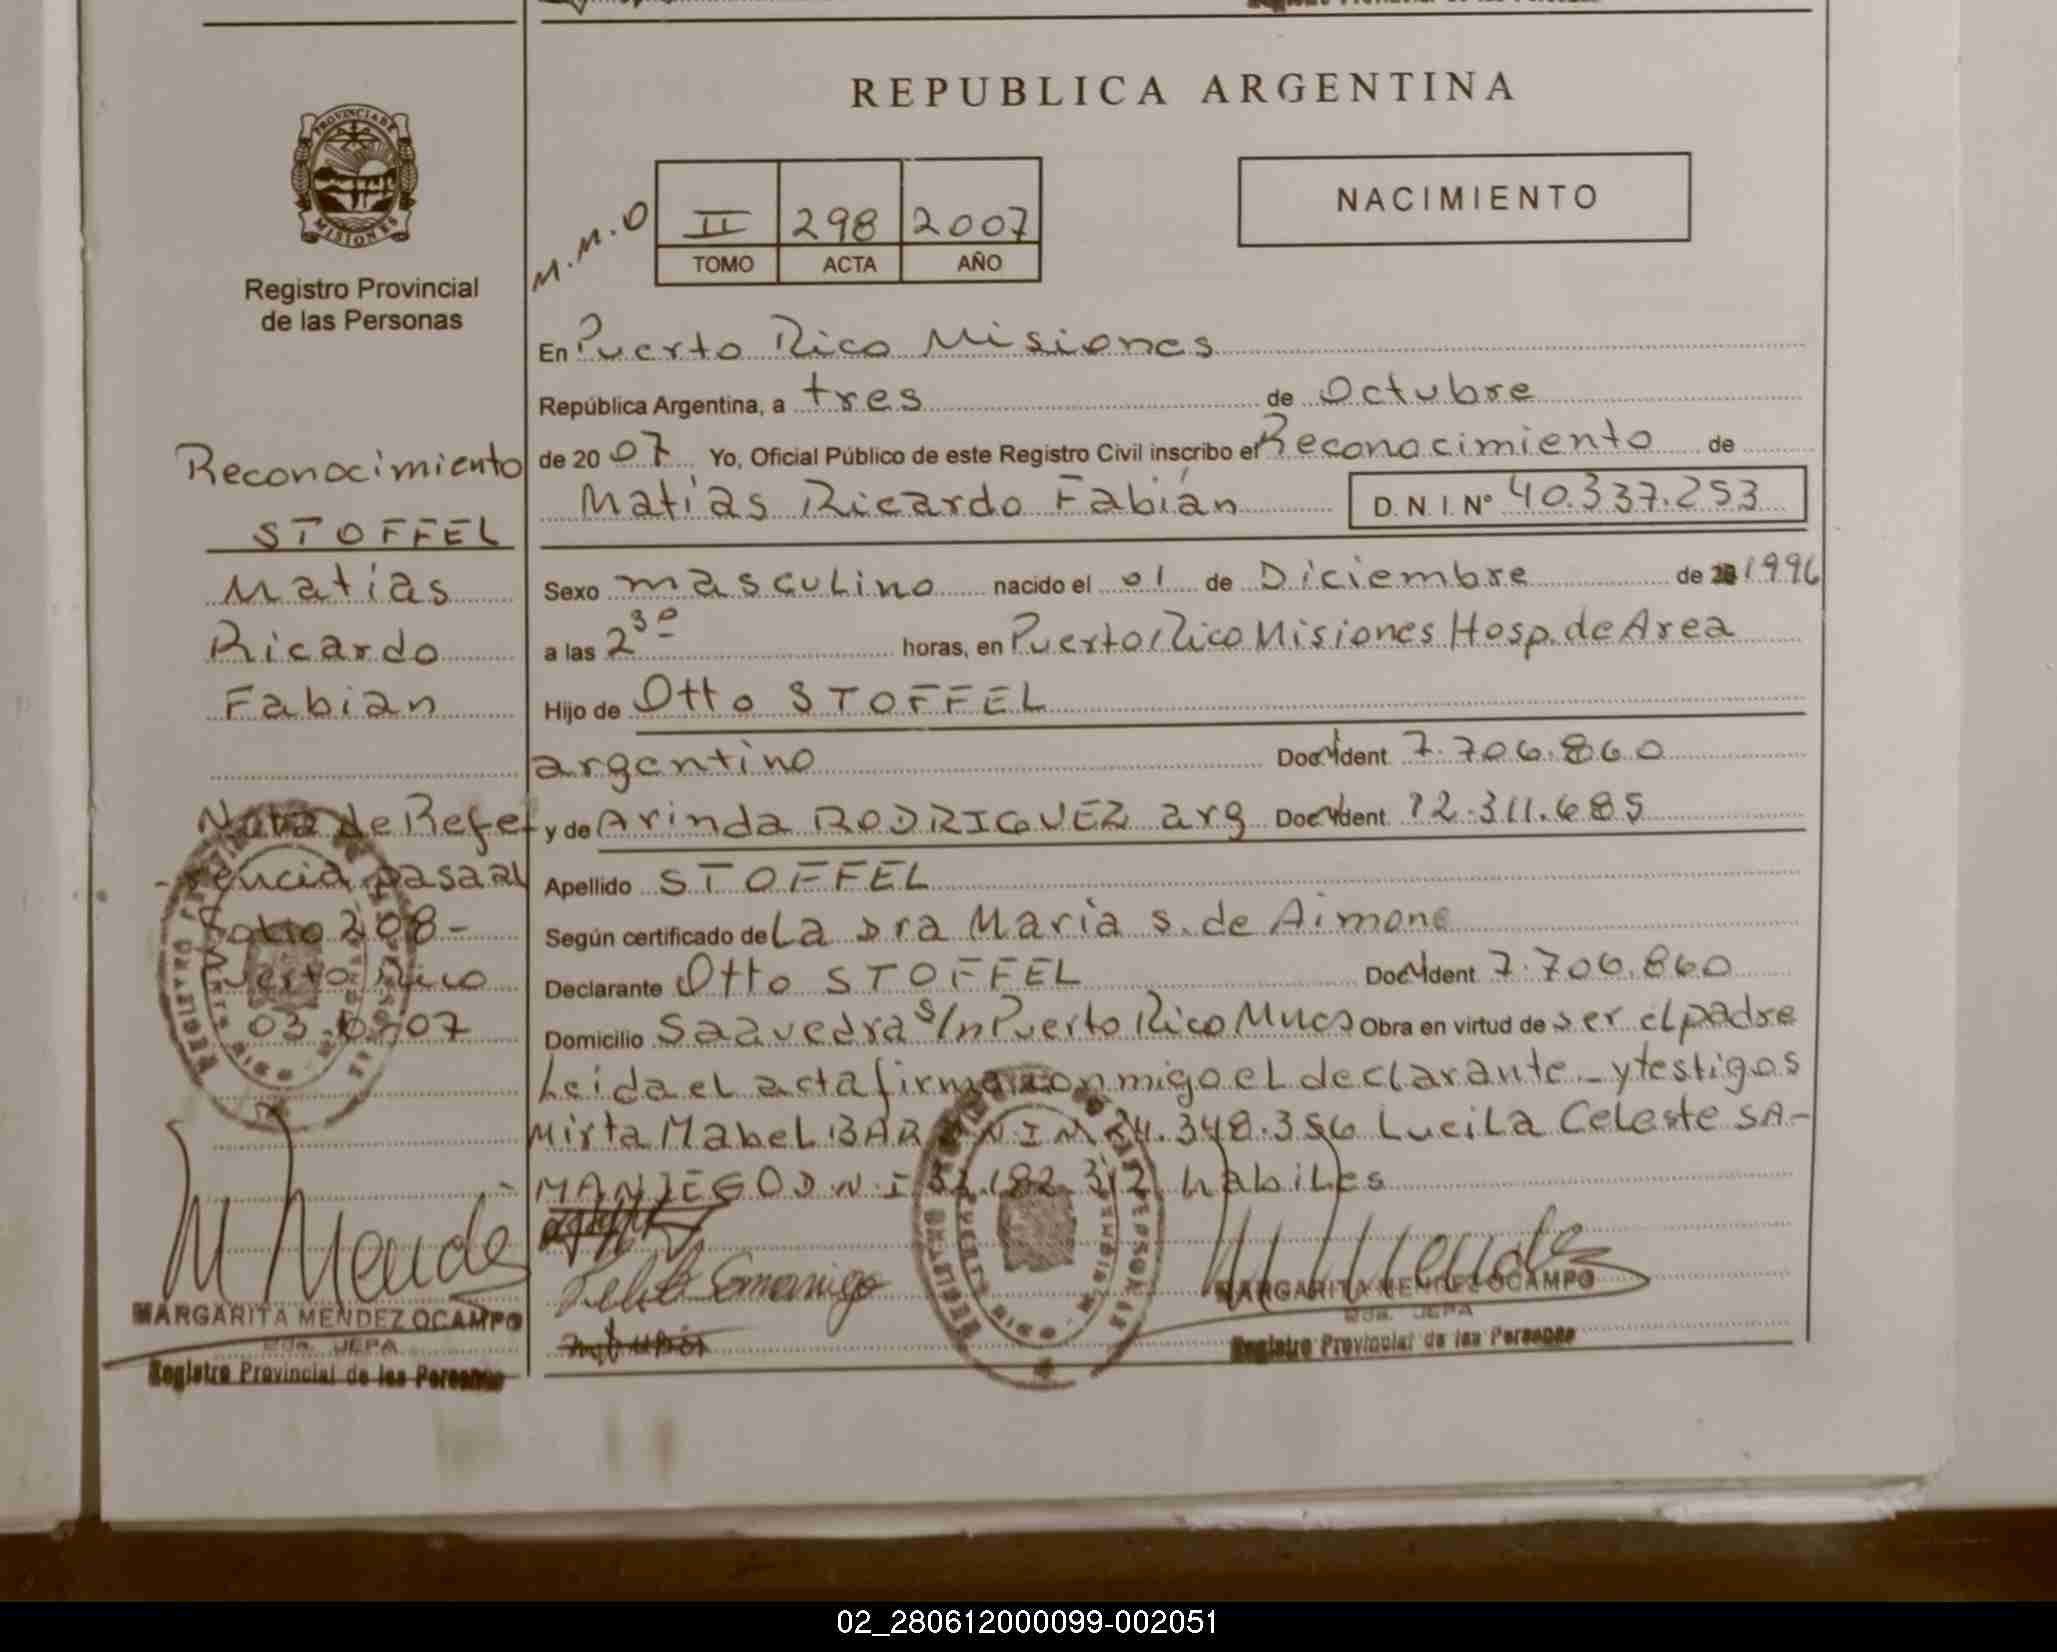 REPUBLICA ARGENTINA
PROVINCIA DE
MISIONES
Registro Provincial
de las Personas
M.M.O
II 298 2007
TOMO ACTA AÑO
NACIMIENTO
En Puerto Rico Misiones
República Argentina, a tres de Octubre
de 20 07 Yo, Oficial Público de este Registro Civil inscribo el Reconocimiento de
Matías Ricardo Fabián D.N.I. Nº 40.337.253
Sexo masculino nacido el 01 de Diciembre de 1996
a las 2 30 horas, en Puerto Rico Misiones Hosp. de Area
Hijo de Otto STOFFEL
argentino Doc. Ident. 7.706.860
y de Arinda RODRIGUEZ arg Doc. Ident. 12.311.685
Apellido STOFFEL
Según certificado de La Dra Maria S. de Aimone
Declarante Otto STOFFEL Doc. Ident. 7.706.860
Domicilio Saavedra S/n Puerto Rico Mnes Obra en virtud de ser el padre
Leida el acta firma conmigo el declarante_ y testigos
Mirta Mabel 24.348.356 Lucila Celeste SA-
MANIEGO D.N.I 182.312 habiles
MARGARITA MENDEZ OCAMPO
Registro Provincial de las Personas
Reconocimiento
STOFFEL
Matías
Ricardo
Fabián
Nota de Refe-
rencia pasa al
Folio 208-
Puerto Rico
03 07
M Mendez
MARGARITA MENDEZ OCAMPO
Registro Provincial de las Personas
02_280612000099-002051